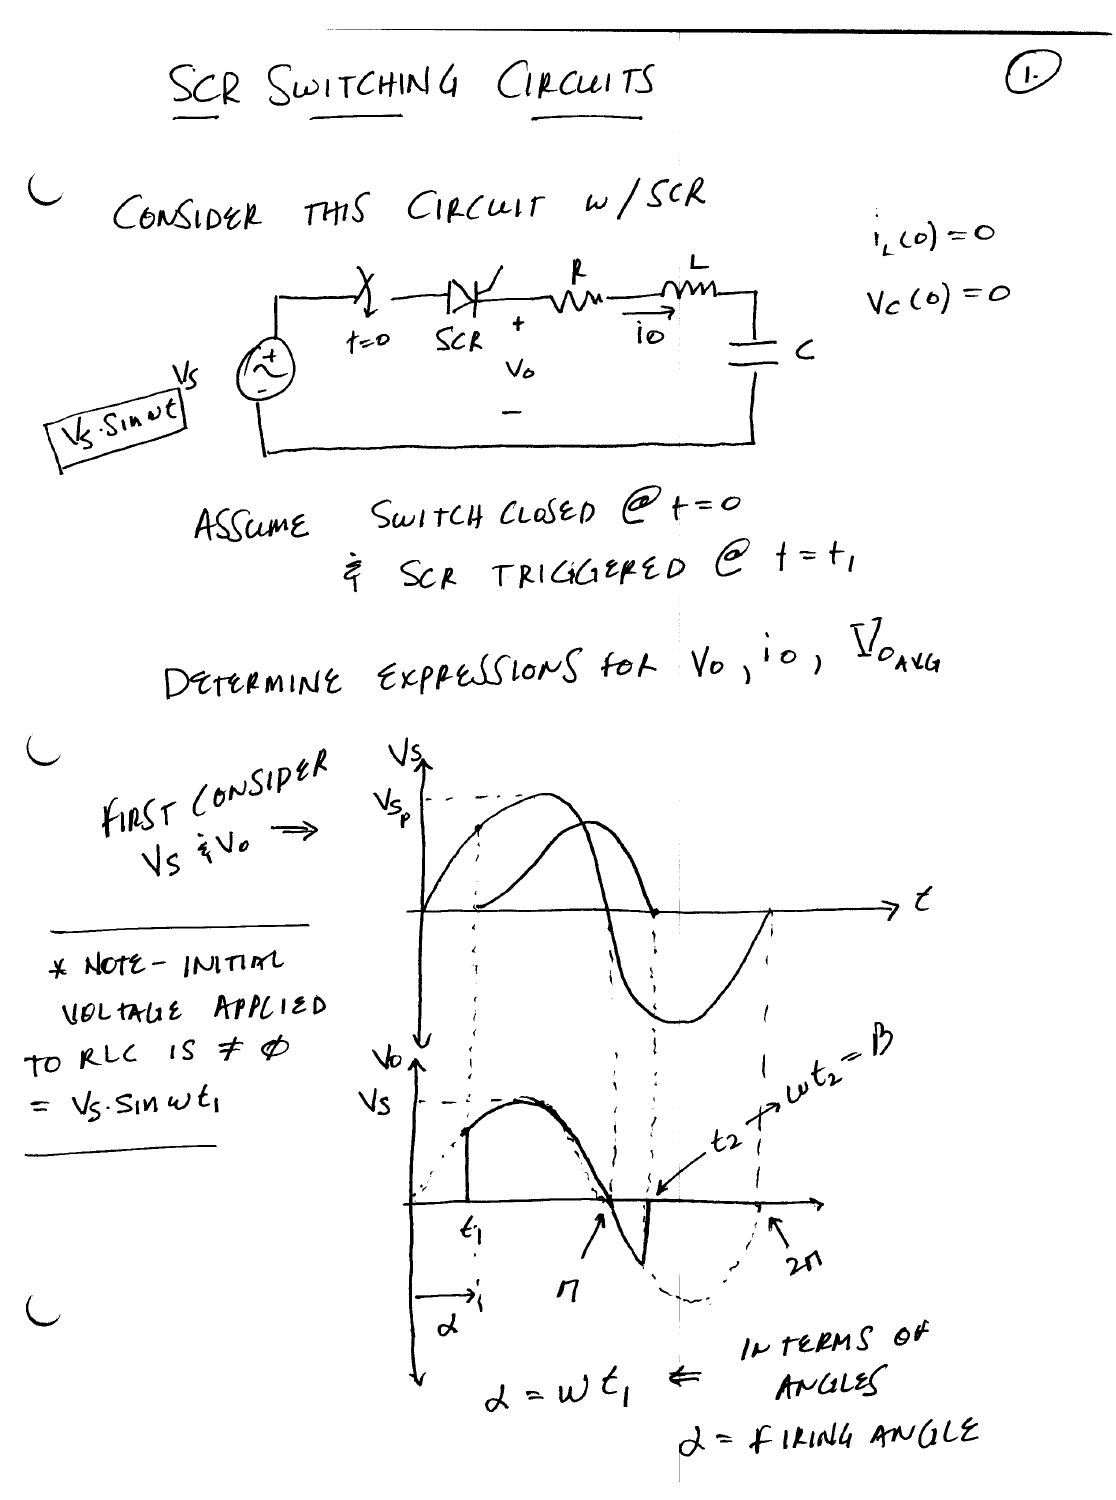 SCR SWITCHING CIRCUITS
1.
CONSIDER THIS CIRCUIT w/SCR
iL(0)=0
Vc(0)=0
t=0
SCR
+
Vo
−
R
io
L
C
Vs
+
-
Vs·Sinωt
ASSUME SWITCH CLOSED @ t=0
& SCR TRIGGERED @ t=t1
DETERMINE EXPRESSIONS FOR Vo, io, VoAVG
FIRST CONSIDER
Vs & Vo ⇒
Vs
Vsp
t
* NOTE - INITIAL
VOLTAGE APPLIED
TO RLC IS ≠ Ø
= Vs·Sinωt1
Vo
Vs
t2 → ωt2=β
t1
π
2π
α
α = ωt1 ⇐ IN TERMS OF
ANGLES
α = FIRING ANGLE